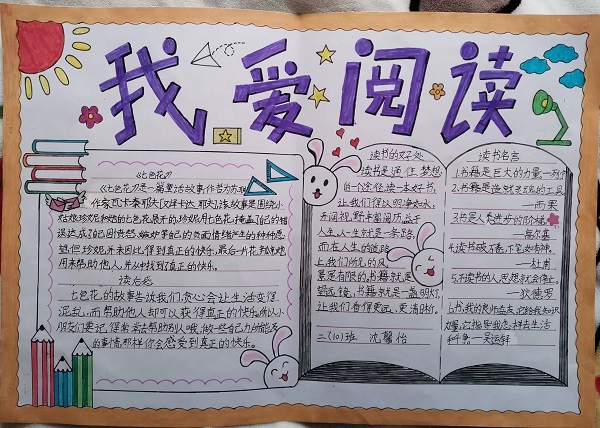 我爱阅读
《七色花》
《七色花》是一篇童话故事作者为苏联
作家瓦·卡泰耶夫
姑娘珍妮和她的七色花展开的,珍妮用七色花掩盖自己的错
望,但珍妮并未因此得到真正的快乐。最后一片花瓣她
用来帮助他人,并从中找到真正的快乐。
读后感
七色花的故事告诉我们,贪心会让生活变得
混乱,而帮助他人却可以获得真正的快乐。所以小
朋友们要记得常常去帮助别人哦,做一些自己力所能及
的事情那样你会感受到真正的快乐。
读书的好处
读书是通往梦想
的一个途径,读一本好书,
让我们得以明净如水,
开阔视野,丰富阅历,益于
人生。人一生就是一条路,
而在人生的道路
上,我们所见的风
景是有限的。书籍就是
望远镜,书籍就是一盏明灯,
让我们看得更远、更清晰。
二(10)班 沈馨怡
读书名言
1.书籍是巨大的力量—列宁
2.书籍是造就灵魂的工具
—雨果
3.书是人类进步的阶梯
—高尔基
4.读书破万卷,下笔如有神。
—杜甫
5.不读书的人,思想就会停止。
—狄德罗
6.书,我的良师益友,它给我知识
力量,它指导我怎样去生活